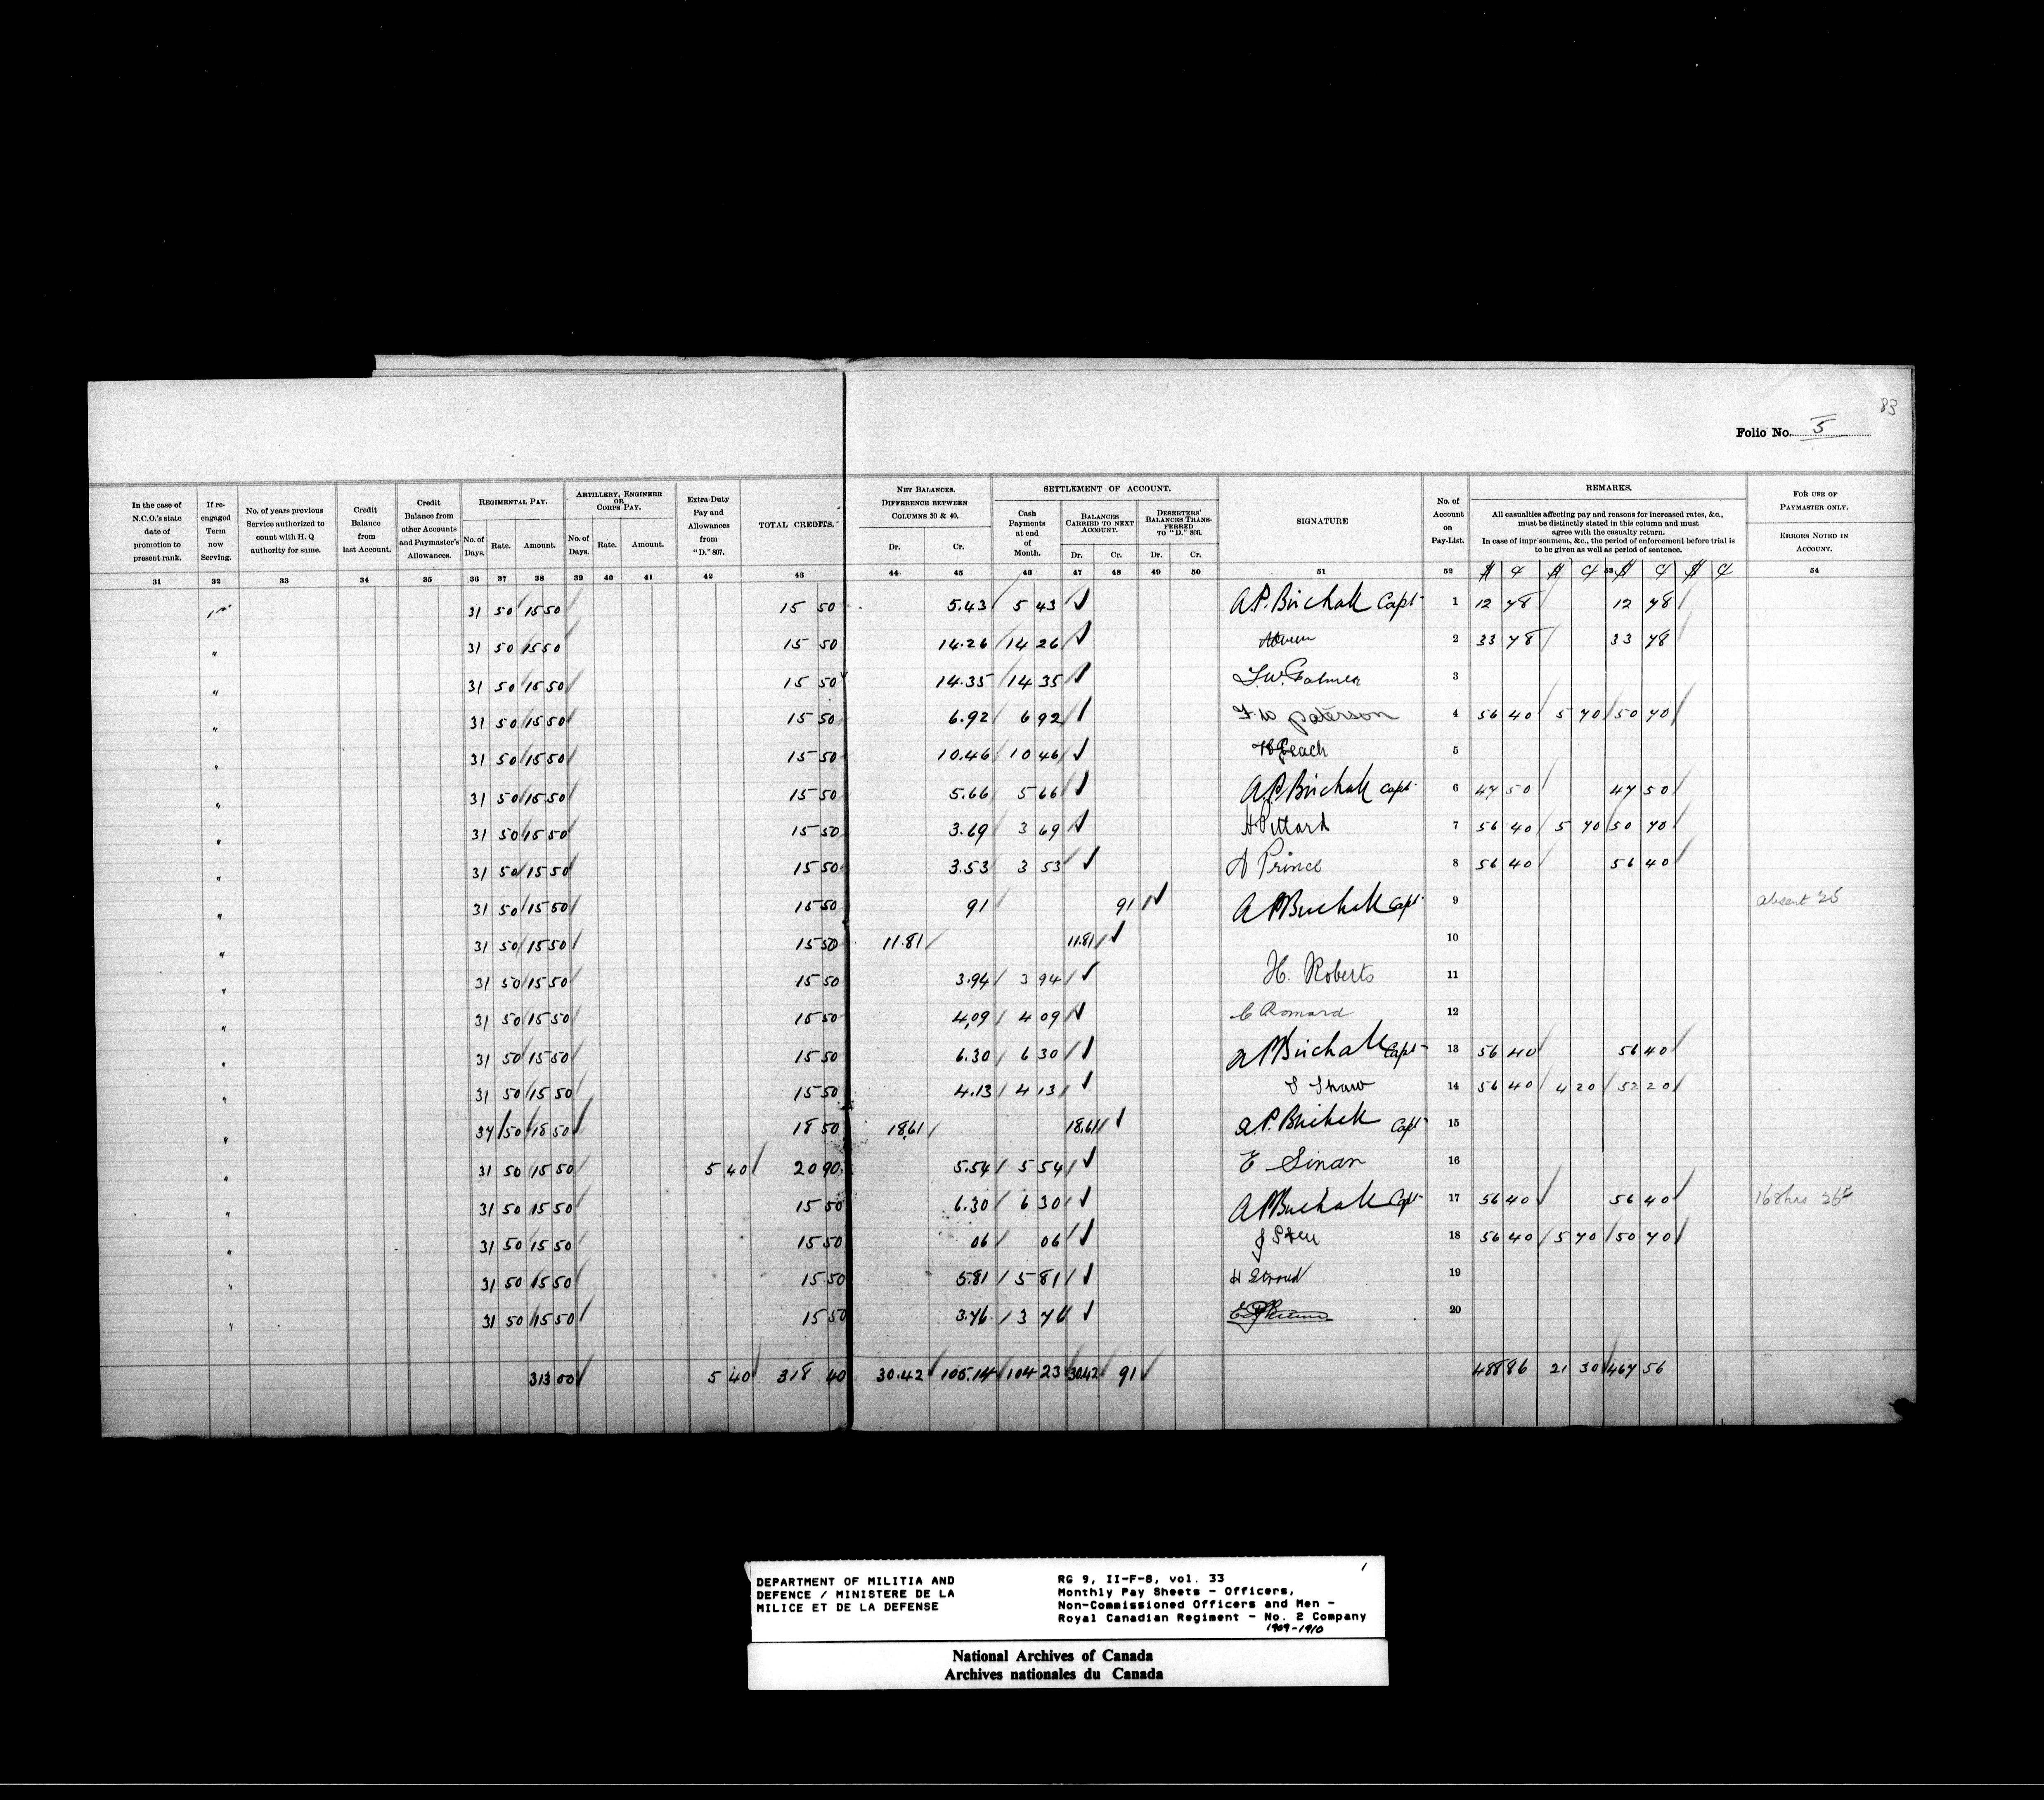 83
Folio No. 5
In the case of N.C.O.'s state date of promotion to present rank.
If re-engaged Term now Serving.
No. of years previous Service authorized to count with H. Q authority for same.
Credit Balance from last Account.
Credit Balance from other Accounts and Paymaster's Allowances.
REGIMENTAL PAY.
No. of Days. Rate. Amount.
ARTILLERY, ENGINEER OR CORPS PAY.
No. of Days. Rate. Amount.
Extra-Duty Pay and Allowances from "D." 807.
TOTAL CREDITS.
NET BALANCES. DIFFERENCE BETWEEN COLUMNS 30 & 40.
Dr. Cr.
SETTLEMENT OF ACCOUNT.
Cash Payments at end of Month.
BALANCES CARRIED TO NEXT ACCOUNT.
Dr. Cr.
DESERTERS' BALANCES TRANSFERRED TO "D." 806.
Dr. Cr.
SIGNATURE
No. of Account on Pay-List.
REMARKS.
All casualties affecting pay and reasons for increased rates, &c., must be distinctly stated in this column and must agree with the casualty return.
In case of impr sonment, &c., the period of enforcement before trial is to be given as well as period of sentence.
FOR USE OF PAYMASTER ONLY.
ERRORS NOTED IN ACCOUNT.
31 32 33 34 35 36 37 38 39 40 41 42 43 44 45 46 47 48 49 50 51 52 53 54
$ ¢ $ ¢ $ ¢ $ ¢
31 50 15 50 15 50 5.43 5 43 A.P. Birchall Capt 1 12 78 12 78
" 31 50 15 50 15 50 14.26 14 26 2 33 78 33 78
" 31 50 15 50 15 50 14.35 14 35 3
" 31 50 15 50 15 50 6.92 6 92 F. W Paterson 4 56 40 5 70 50 70
" 31 50 15 50 15 50 10.46 10 46 5
" 31 50 15 50 15 50 5.66 5 66 A.P. Birchall Capt 6 47 50 47 50
" 31 50 15 50 15 50 3.69 3 69 H Pittard 7 56 40 5 70 50 70
" 31 50 15 50 15 50 3.53 3 53 A Prince 8 56 40 56 40
" 31 50 15 50 15 50 91 91 A P Birchall Capt 9 absent
" 31 50 15 50 15 50 11.81 11.81 10
" 31 50 15 50 15 50 3.94 3 94 H. Roberts 11
" 31 50 15 50 15 50 4.09 4 09 C Romard 12
" 31 50 15 50 15 50 6.30 6 30 A P Birchall Capt 13 56 40 56 40
" 31 50 15 50 15 50 4.13 4 13 S Shaw 14 56 40 4 20 52 20
" 37 50 18 50 18 50 18.61 18.61 A.P. Birchall Capt 15
" 31 50 15 50 5 40 20 90 5.54 5 54 E Sinan 16
" 31 50 15 50 15 50 6.30 6 30 A P Birchall Capt 17 56 40 56 40 168 hrs
" 31 50 15 50 15 50 06 06 18 56 40 5 70 50 70
" 31 50 15 50 15 50 5.81 5 81 H Stroud 19
" 31 50 15 50 15 50 3.76 3 76 20
313 00 5 40 318 40 30.42 105.14 104 23 30.42 91 488 86 21 30 467 56
DEPARTMENT OF MILITIA AND
DEFENCE / MINISTERE DE LA
MILICE ET DE LA DEFENSE
RG 9, II-F-8, vol. 33
Monthly Pay Sheets - Officers,
Non-Commissioned Officers and Men -
Royal Canadian Regiment - No. 2 Company
1909-1910
National Archives of Canada
Archives nationales du Canada